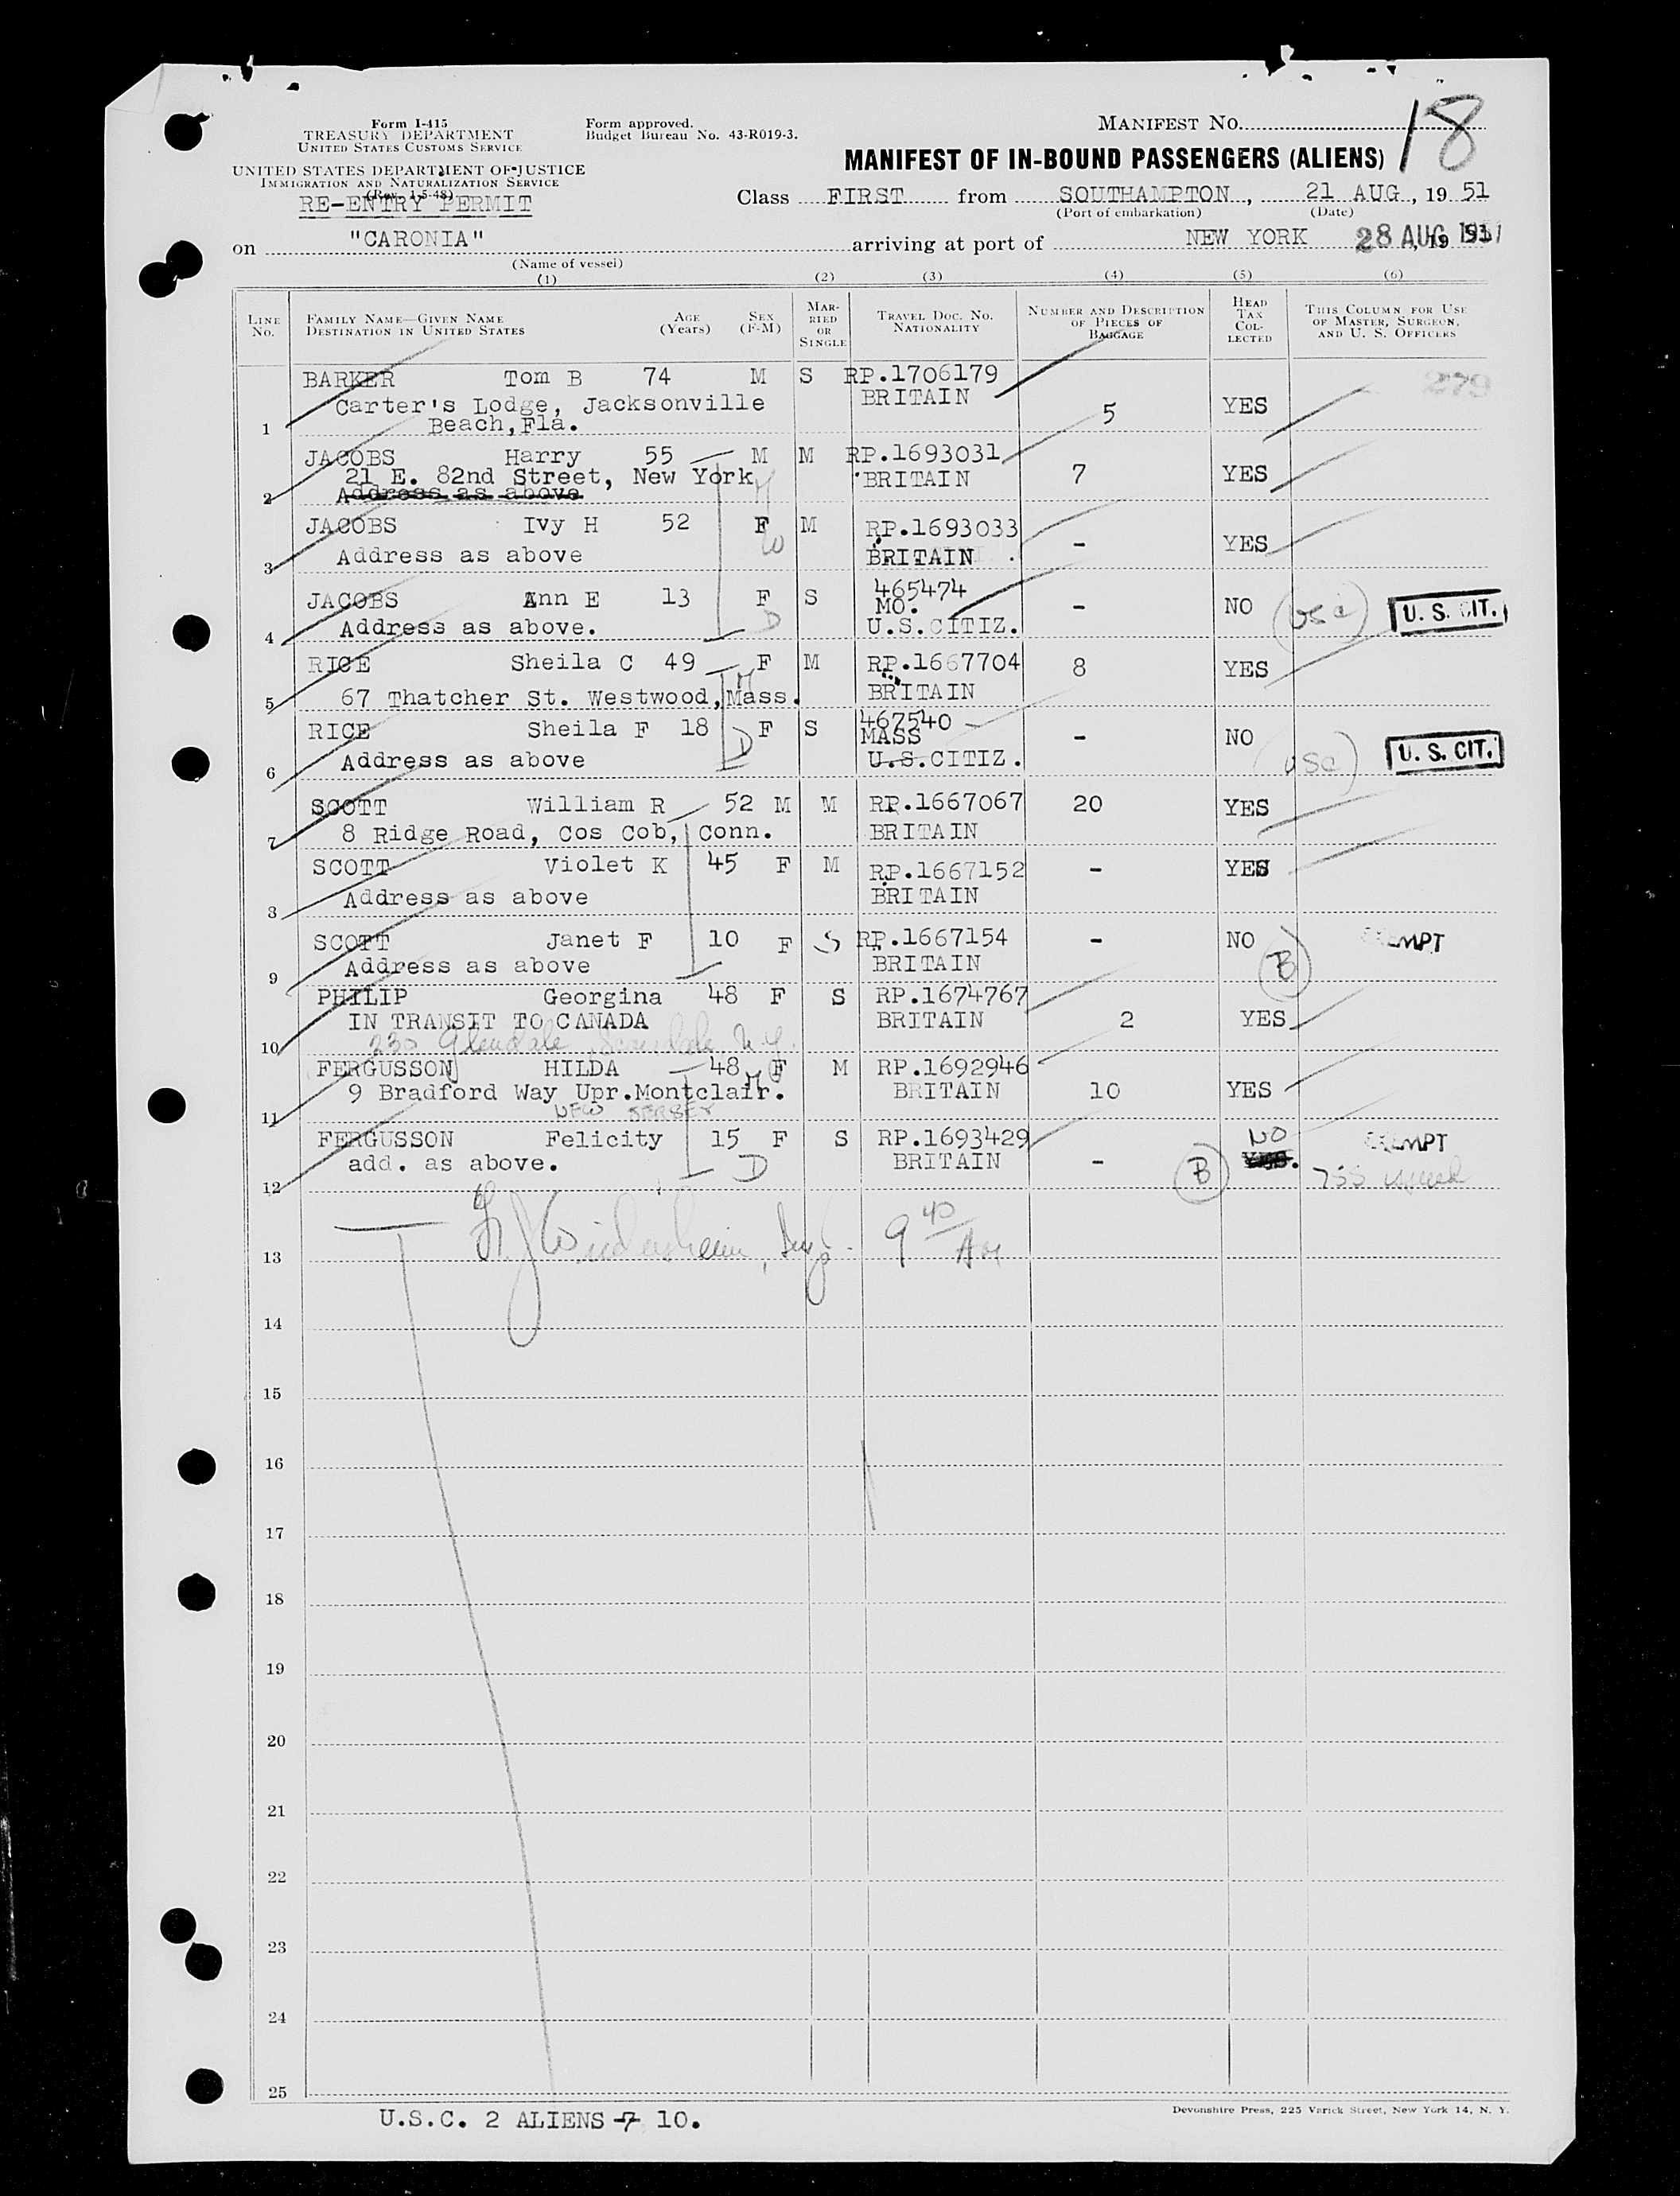 Form I-415
TREASURY DEPARTMENT
UNITED STATES CUSTOMS SERVICE
UNITED STATES DEPARTMENT OF JUSTICE
IMMIGRATION AND NATURALIZATION SERVICE
(Rev. 1-5-48)
RE-ENTRY PERMIT
Form approved.
Budget Bureau No. 43-R019-3.
MANIFEST NO. 18
MANIFEST OF IN-BOUND PASSENGERS (ALIENS)
Class FIRST from SOUTHAMPTON, 21 AUG, 19 51
(Port of embarkation) (Date)
on "CARONIA" arriving at port of NEW YORK 28 AUG 1951
(Name of vessel)
(1) (2) (3) (4) (5) (6)
LINE NO. FAMILY NAME—GIVEN NAME DESTINATION IN UNITED STATES AGE (Years) SEX (F-M) MARRIED OR SINGLE TRAVEL DOC. NO. NATIONALITY NUMBER AND DESCRIPTION OF PIECES OF BAGGAGE HEAD TAX COLLECTED THIS COLUMN FOR USE OF MASTER, SURGEON, AND U. S. OFFICERS
BARKER Tom B 74 M S RP.1706179 279
Carter's Lodge, Jacksonville BRITAIN 5 YES
1 Beach, Fla.
JACOBS Harry 55 M M RP.1693031
21 E. 82nd Street, New York BRITAIN 7 YES
2 Address as above
JACOBS Ivy H 52 F M RP.1693033
W
3 Address as above BRITAIN - YES
JACOBS Ann E 13 F S 465474
MO. - NO USC U. S. CIT.
D
4 Address as above. U.S.CITIZ.
RICE Sheila C 49 F M RP.1667704 8 YES
5 67 Thatcher St. Westwood, Mass. BRITAIN
RICE Sheila F 18 D F S 467540
MASS - NO USC U. S. CIT.
6 Address as above U.S.CITIZ.
SCOTT William R 52 M M RP.1667067 20 YES
7 8 Ridge Road, Cos Cob, Conn. BRITAIN
SCOTT Violet K 45 F M RP.1667152 - YES
8 Address as above BRITAIN
SCOTT Janet F 10 F S RP.1667154 - NO B EXEMPT
9 Address as above BRITAIN
PHILIP Georgina 48 F S RP.1674767
IN TRANSIT TO CANADA BRITAIN 2 YES
10 230 Glendale Scarsdale N.Y.
FERGUSSON HILDA 48 M F M RP.1692946
9 Bradford Way Upr.Montclair. BRITAIN 10 YES
11 NEW JERSEY
FERGUSSON Felicity 15 F S RP.1693429 NO EXEMPT
add. as above. D BRITAIN - B YES.
12
13 9 40 AM
14
15
16
17
18
19
20
21
22
23
24
25
U.S.C. 2 ALIENS 7 10.
Devonshire Press, 225 Varick Street, New York 14, N. Y.